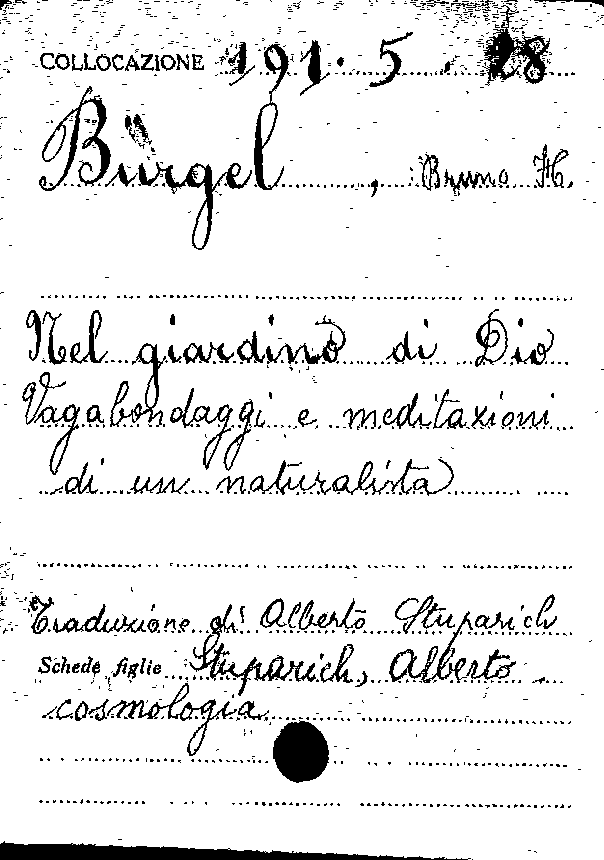 COLLOCAZIONE 191.5.28
Bürgel, Bruno H.
Nel giardino di Dio
Vagabondaggi e meditazioni
di un naturalista
Traduzione di Alberto Stuparich
Schede figlie Stuparich, Alberto.
cosmologia